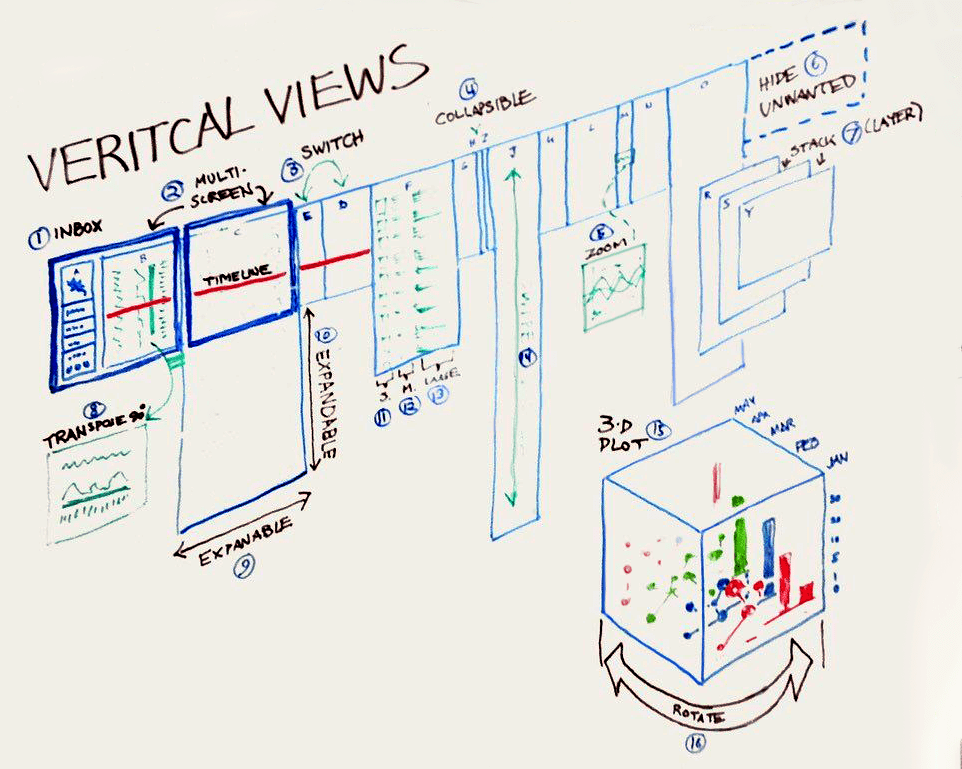 VERITCAL VIEWS
1 INBOX
2 MULTI-
SCREEN
3 SWITCH
4
COLLAPSIBLE
HIDE 6
UNWANTED
STACK 7 (LAYER)
A
B
C
TIMELINE
E
D
F
G
H
I
J
K
L
M
N
O
R
S
Y
ZOOM
8
TRANSPOSE 90°
9
EXPANABLE
10 EXPANDABLE
S.
M.
11
12
13
14
3-D
PLOT 15
MAY
APR
MAR
FEB
JAN
ROTATE
16